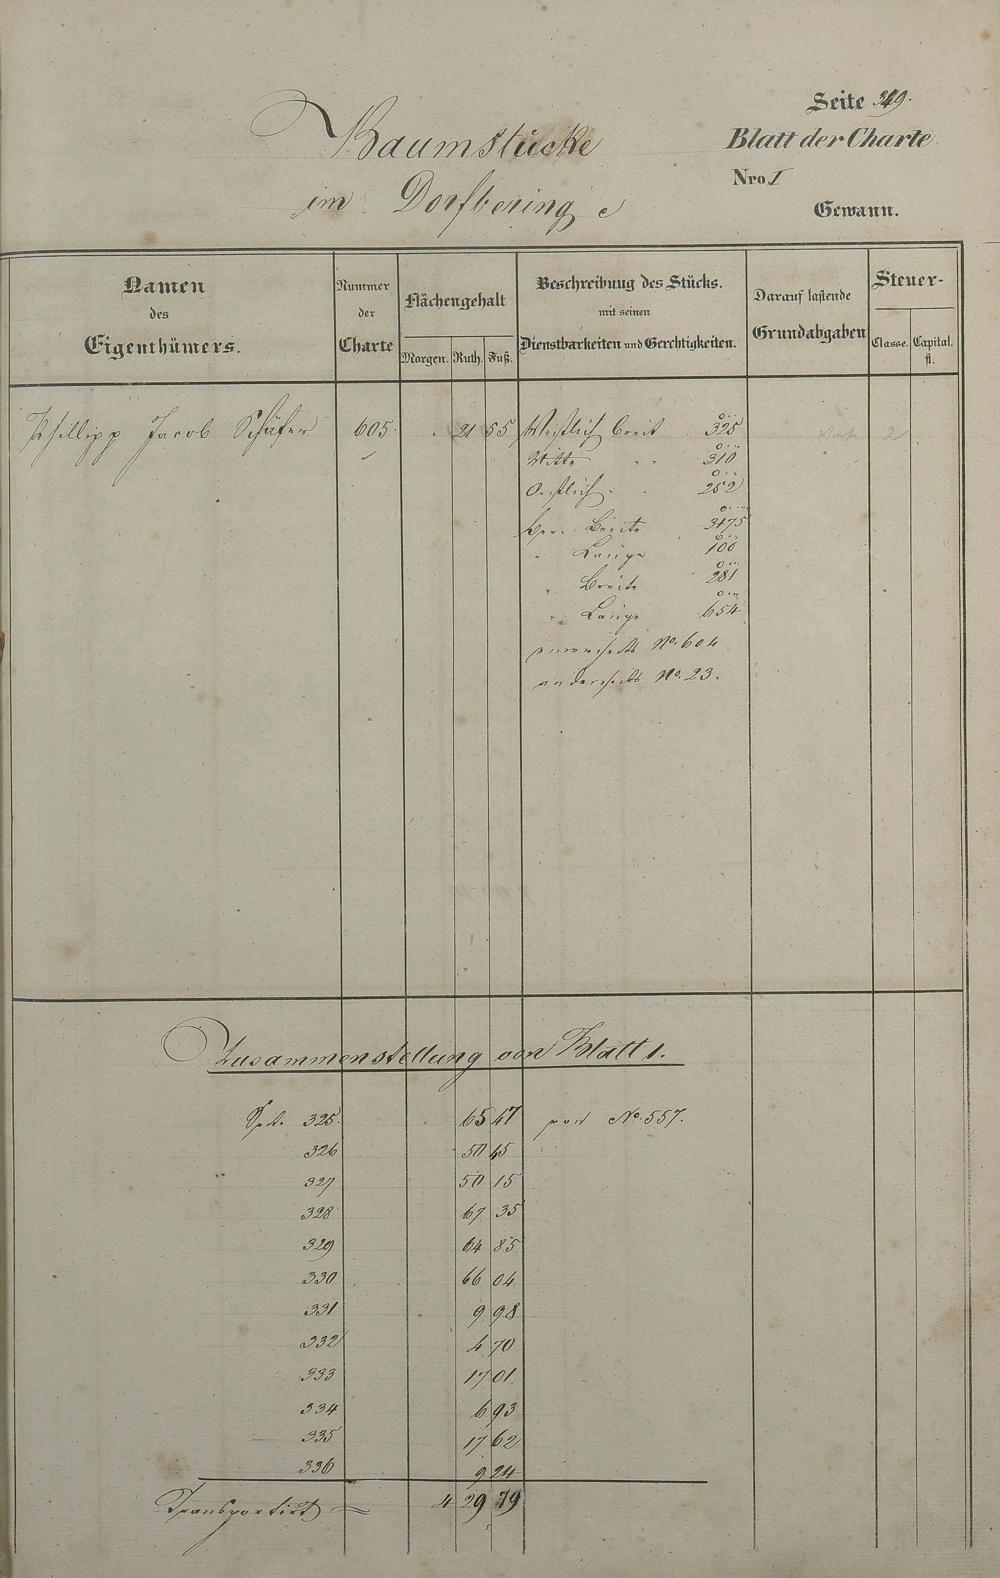 Seite 349.
Blatt der Charte
Nro I
Gewann.
Baumstücke
im Dorfbering
Namen
des
Eigenthümers.
Nummer
der
Charte
Flächengehalt
Morgen. Ruth. Fuß.
Beschreibung des Stücks.
mit seinen
Dienstbarkeiten und Gerechtigkeiten.
Darauf lastende
Grundabgaben
Steuer-
Classe. Capital.
fl.
Phillipp Jacob Schäfer 605. 21 55 Westlich breit 325
Mitte " " 310
Oestlich " " 252
ber. Breite 3475
" Länge 100
" Breite 281
" Länge 654
einerseits No. 604
anderseits No. 23.
Zusammenstellung von Blatt 1.
Seite 325. 65 47 von No. 557.
326 50 45
327 50 15
328 67 35
329 64 85
330 66 04
331 9 98
332 4 70
333 17 01
334 6 93
335 17 62
336 9 24
Transportirt = 4 29 79